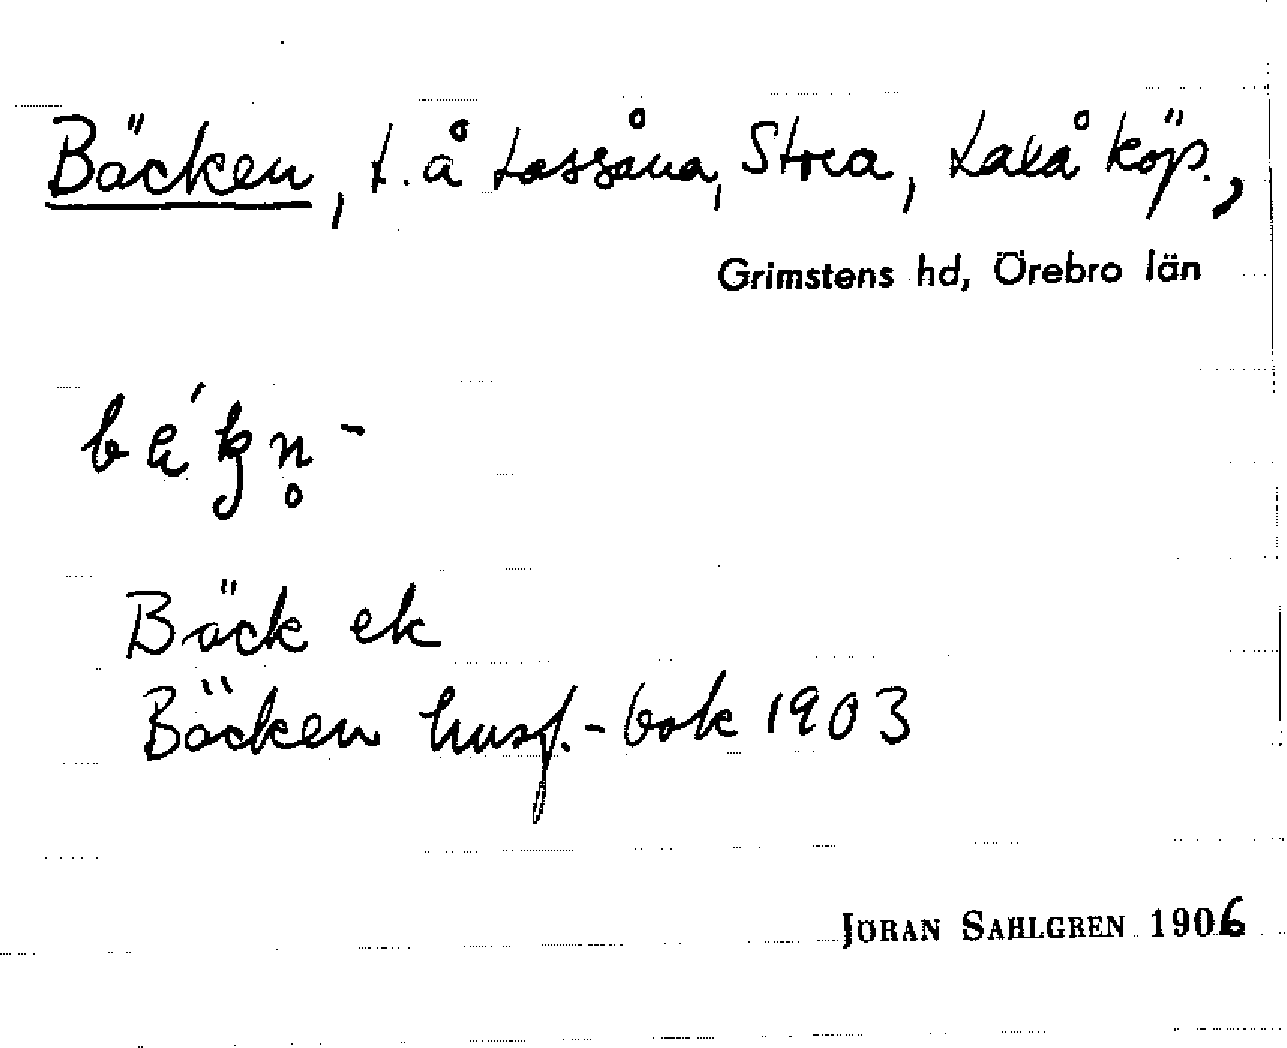 Bäcken, t. å Lassåna, Stora, Laxå köp.,
Grimstens hd, Örebro län
Bäck ek
Bäcken husf.-bok 1903
JÖRAN SAHLGREN 1906